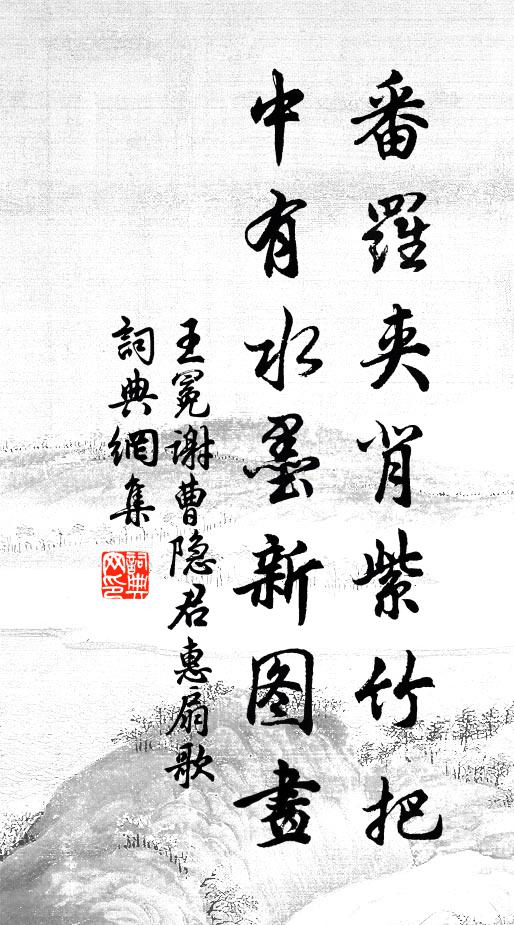 番羅夾背紫竹把
中有水墨新图畫
王冕谢曹隐君惠扇歌
詞典網集
詞典网印